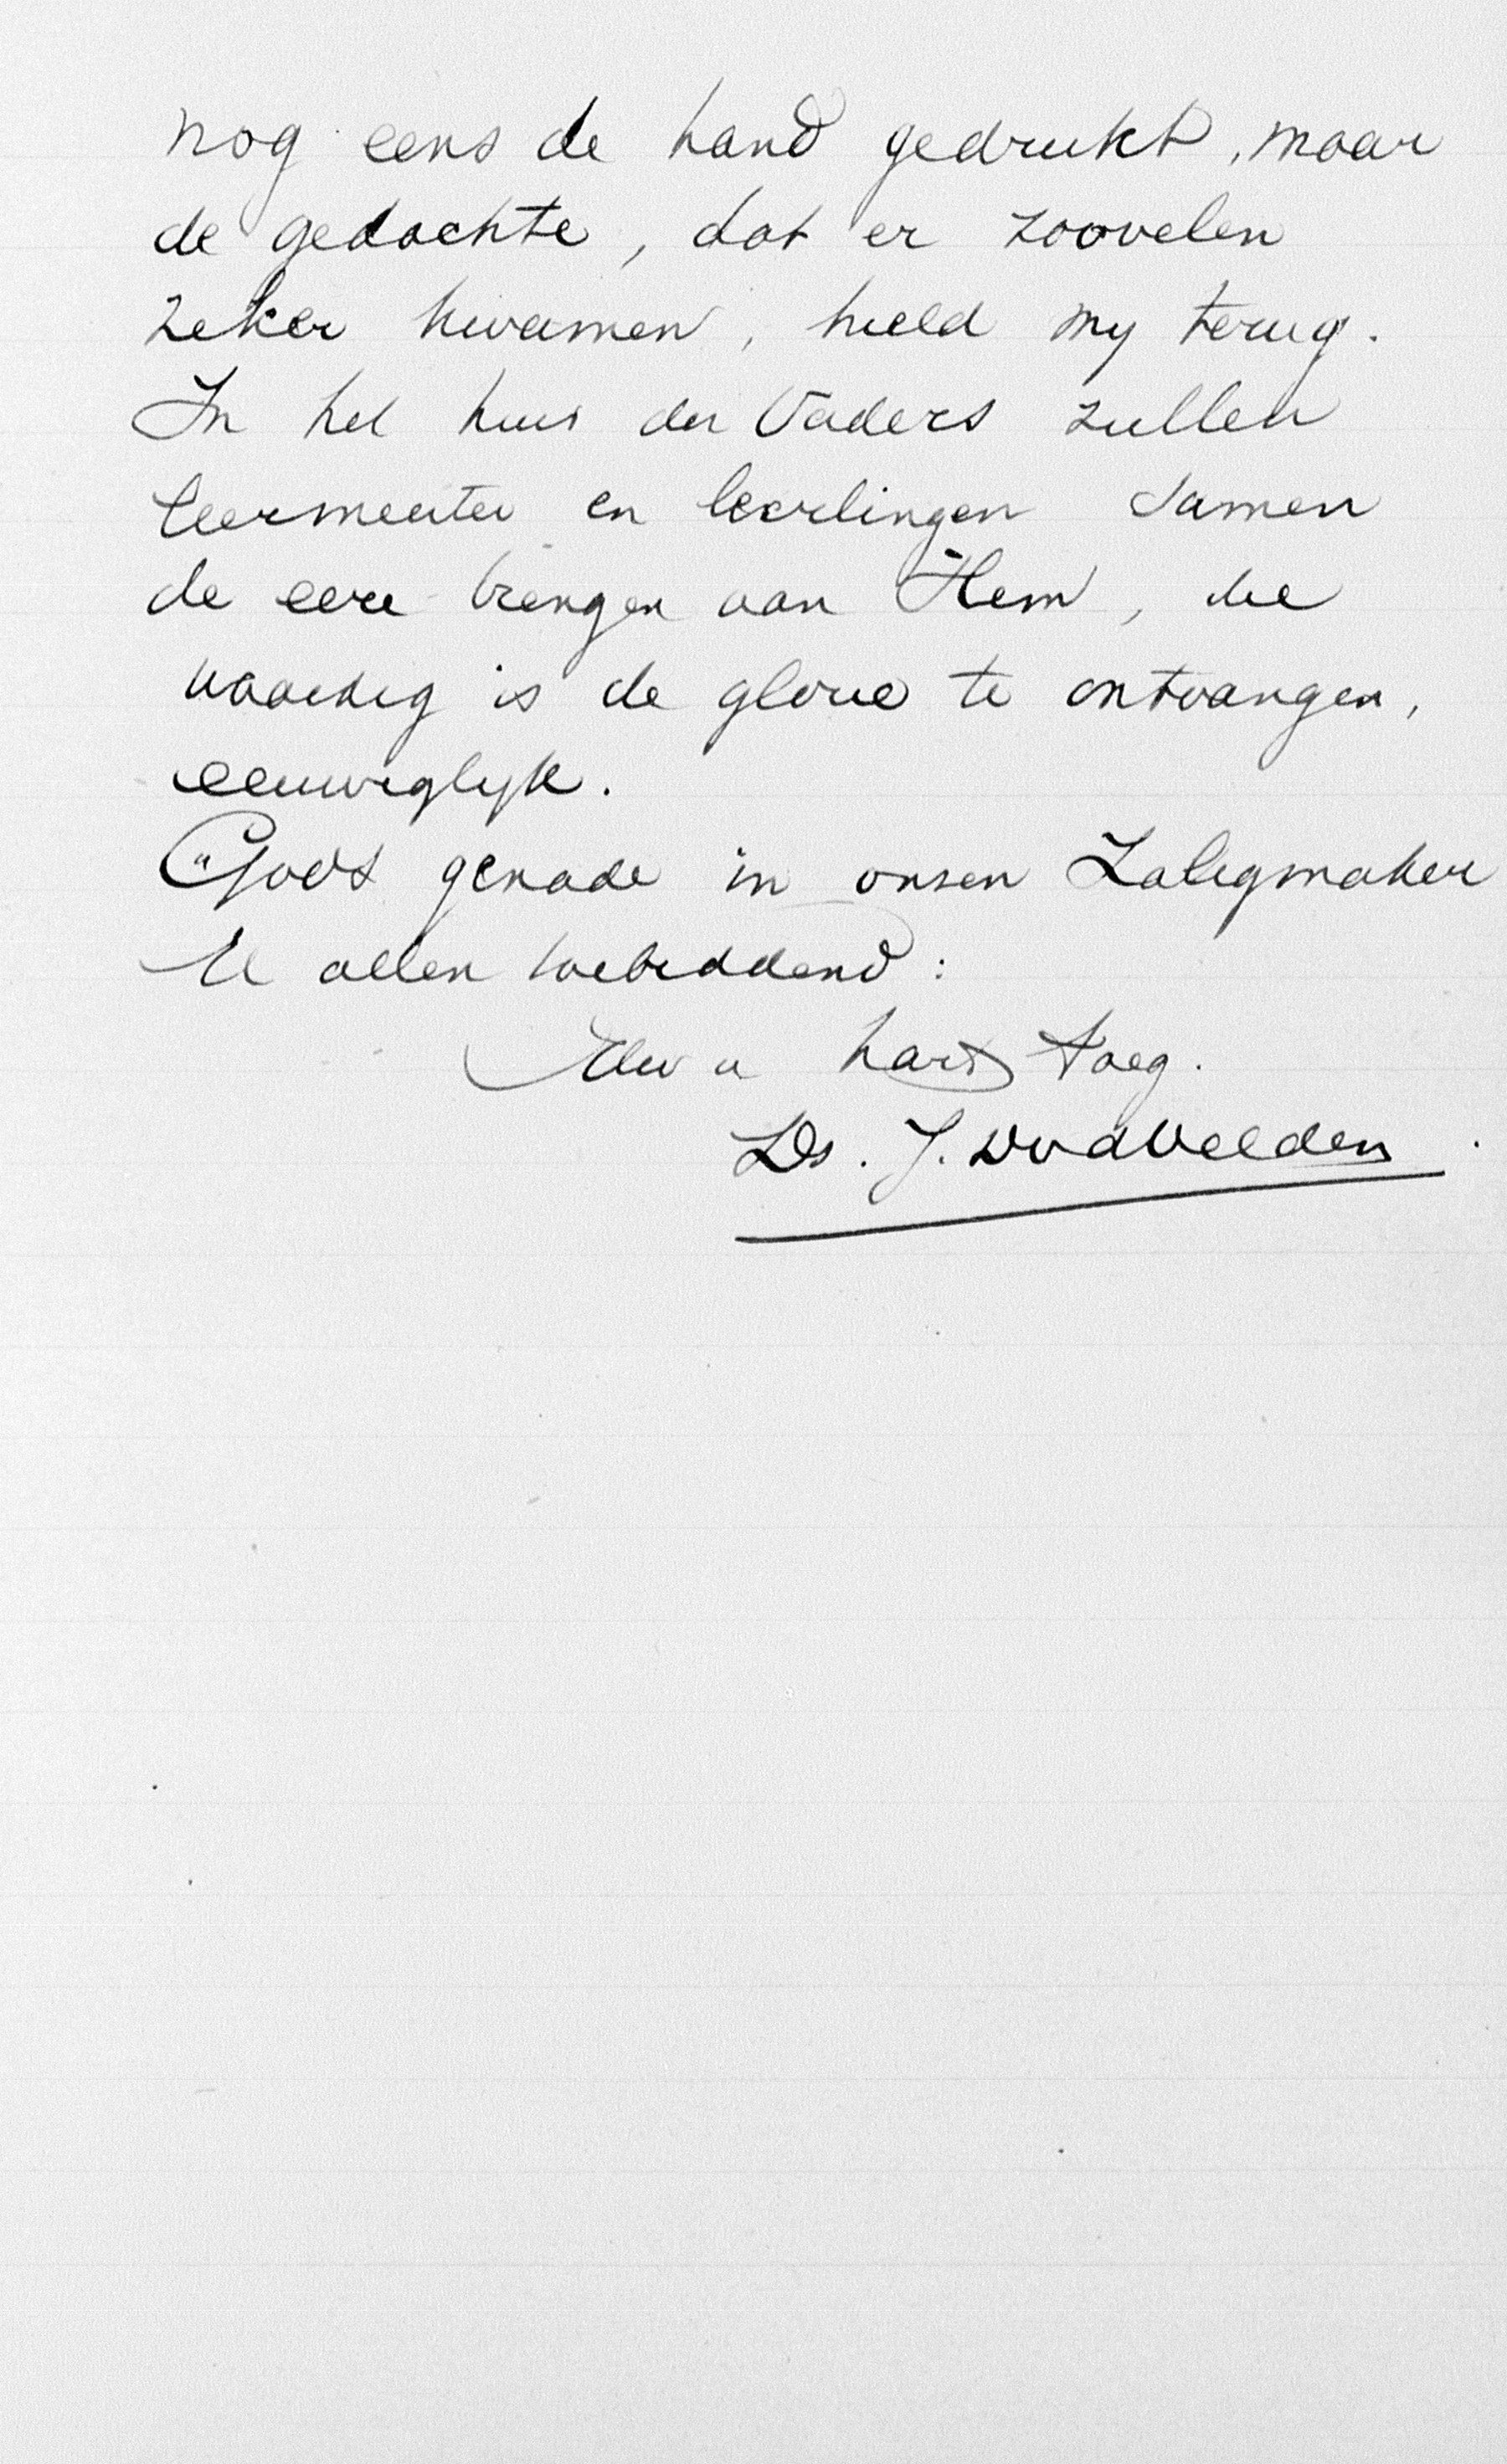 nog eens de hand gedrukt, maar
de gedachte, dat er zoovelen
zeker kwamen, hield my terug.
In het huis des Vaders zullen
leermeester en leerlingen samen
de eere brengen aan Hem, die
waardig is de glorie te ontvangen,
eeuwiglyk.
Gods genade in onzen Zaligmaker
U allen toebiddend:
hart toeg.
Ds. J.